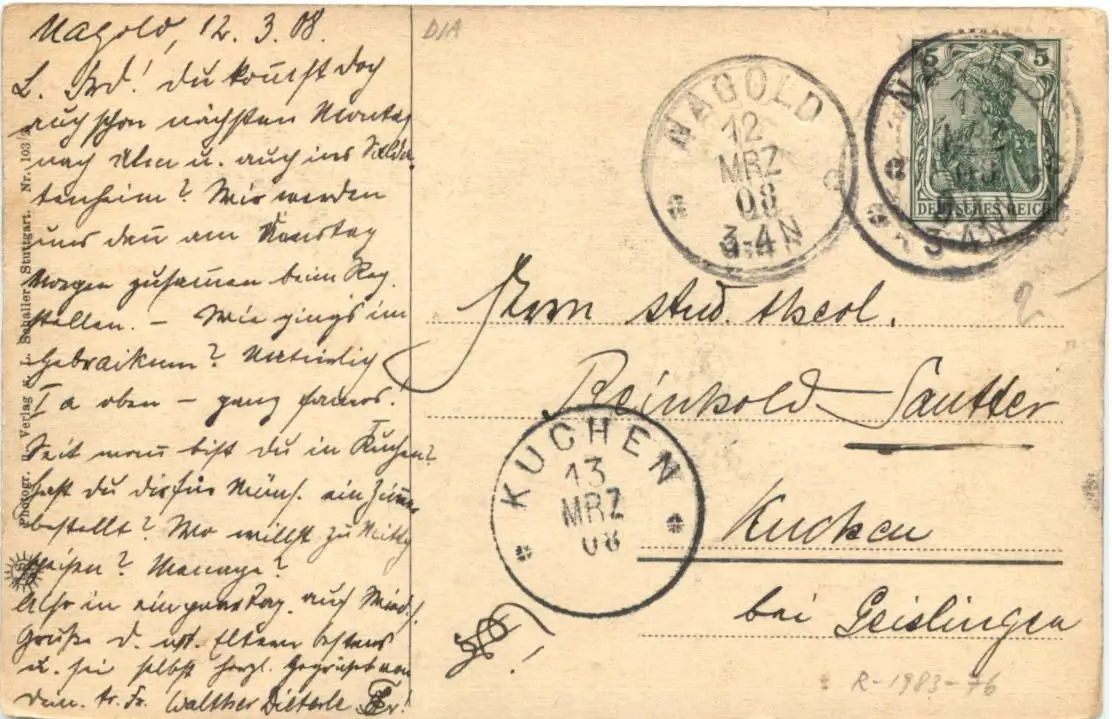 Nagold, 12. 3. 08.
L. Frd! du kommst doch
auch schon nächsten Montag
nach Ulm u. auch ins Solda-
tenheim? Wir werden
uns den am Dienstag
Morgen zusammen beim Reg.
stellen. – Wie gings im
Hebraikum? Natürlich
I a oben – ganz famos!
Seit wann bist du in Kuchen?
Hast du dir für Müns. ein Zimmer
bestellt? Wo willst zu Mittag
speisen? Menage?
Also in ein paar Tag. auf Wieds.!
Grüße d. Eltern bestens
u. sei selbst herzl. gegrüßt von
dein. tr. Fr. Walther Dieterle
Photogr. u. Verlag v. L. Schaller, Stuttgart. Nr. 103/
D/A
NAGOLD
12
MRZ
08
3-4N
5 5
DEUTSCHES REICH
3-4N
2
Herrn stud. theol.
Reinhold Sautter
Kuchen
bei Geislingen
KUCHEN
13
MRZ
08
R-1983-76